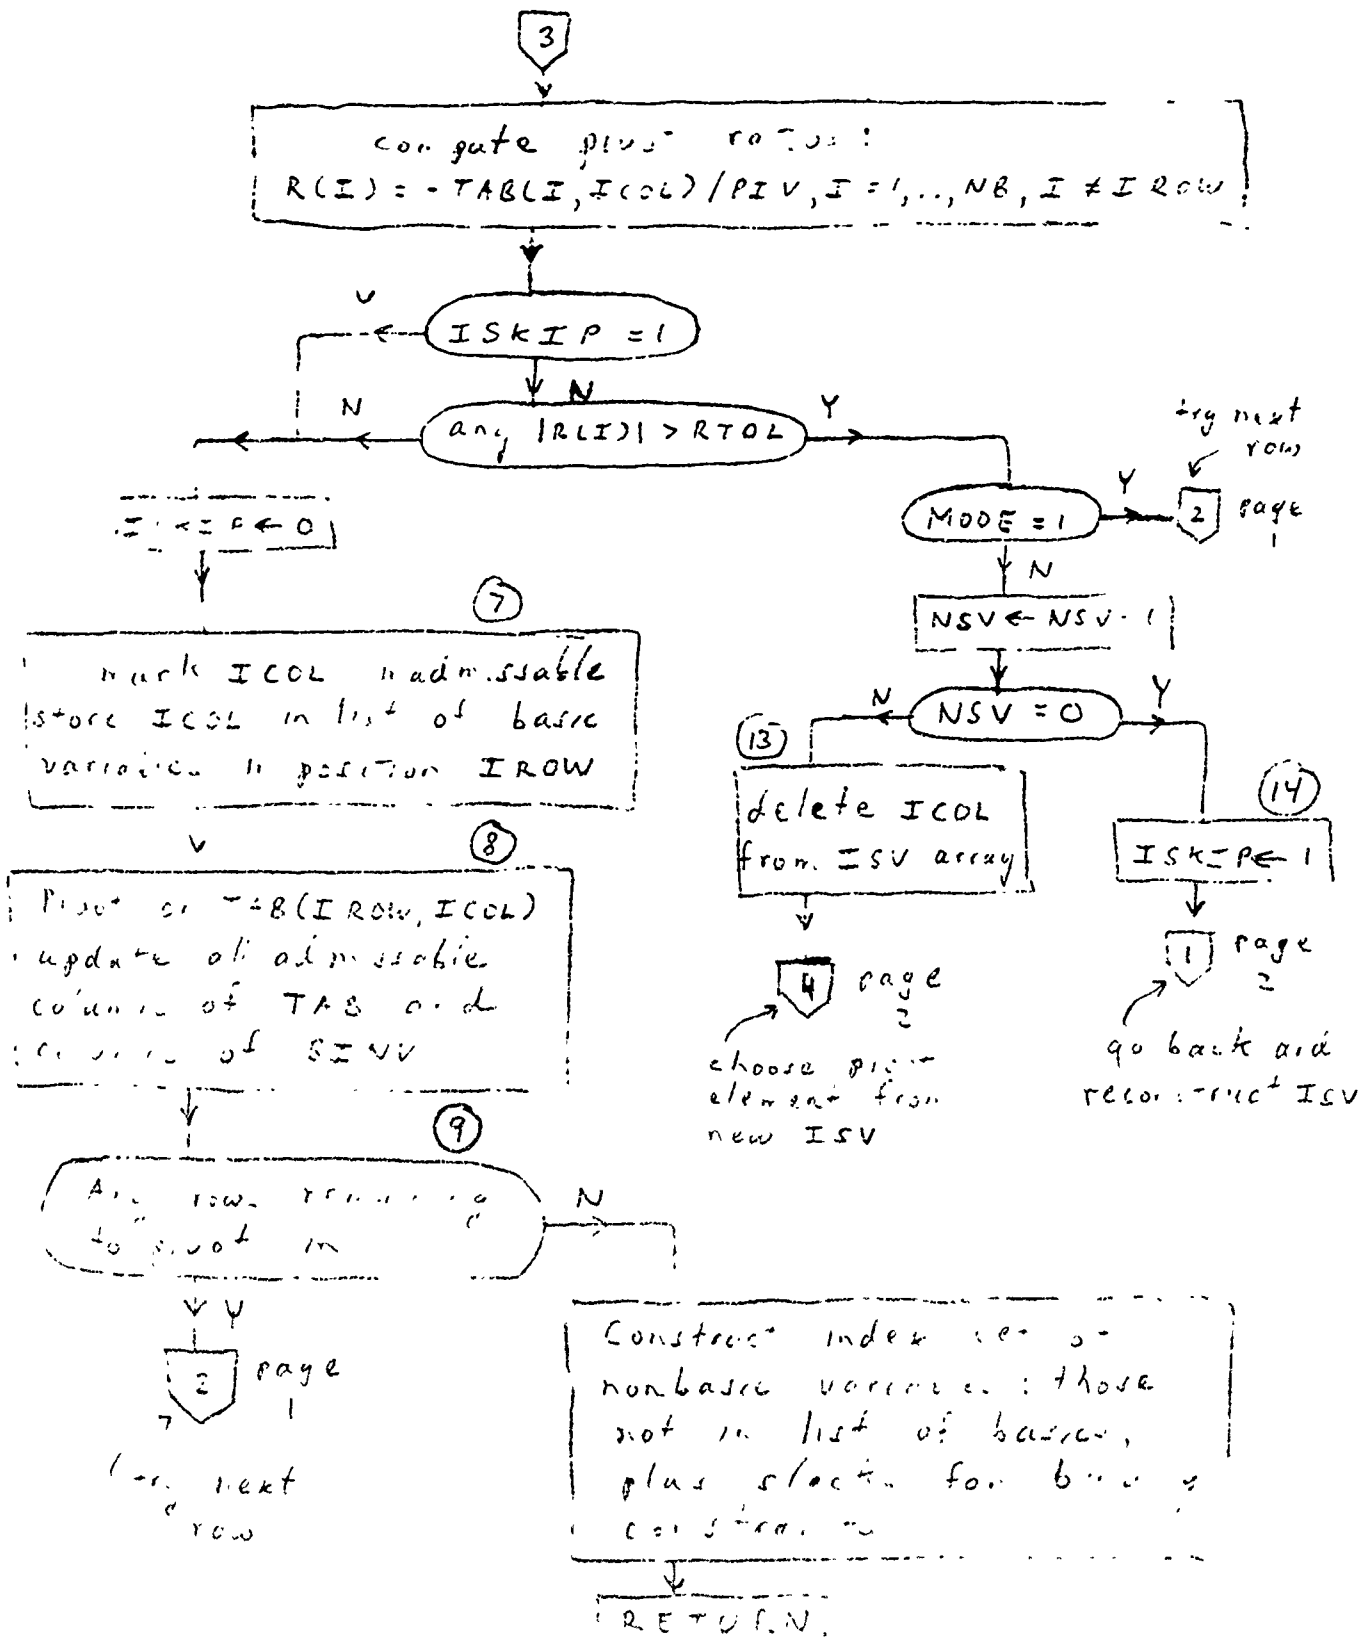 3
compute pivot ratios:
R(I) = - TAB(I, ICOL) / PIV, I = 1, .., NB, I ≠ IROW
ISKIP = 1
N
N
any |R(I)| > RTOL
Y
try next
row
MODE = 1
Y
2
page
1
← 0
N
NSV ← NSV - 1
7
mark ICOL inadmissable
store ICOL in list of basic
variables in position IROW
N
NSV = 0
Y
13
delete ICOL
from ISV array
14
ISKIP ← 1
8
Pivot on TAB(IROW, ICOL)
update all admissable
columns of TAB and
of BINV
4
page
2
choose pivot
element from
new ISV
1
page
2
go back and
reconstruct ISV
9
Any rows remaining
to pivot in
N
Y
2
page
1
try next
row
Construct index set of
nonbasic variables: those
not in list of basics,
plus slacks for
RETURN